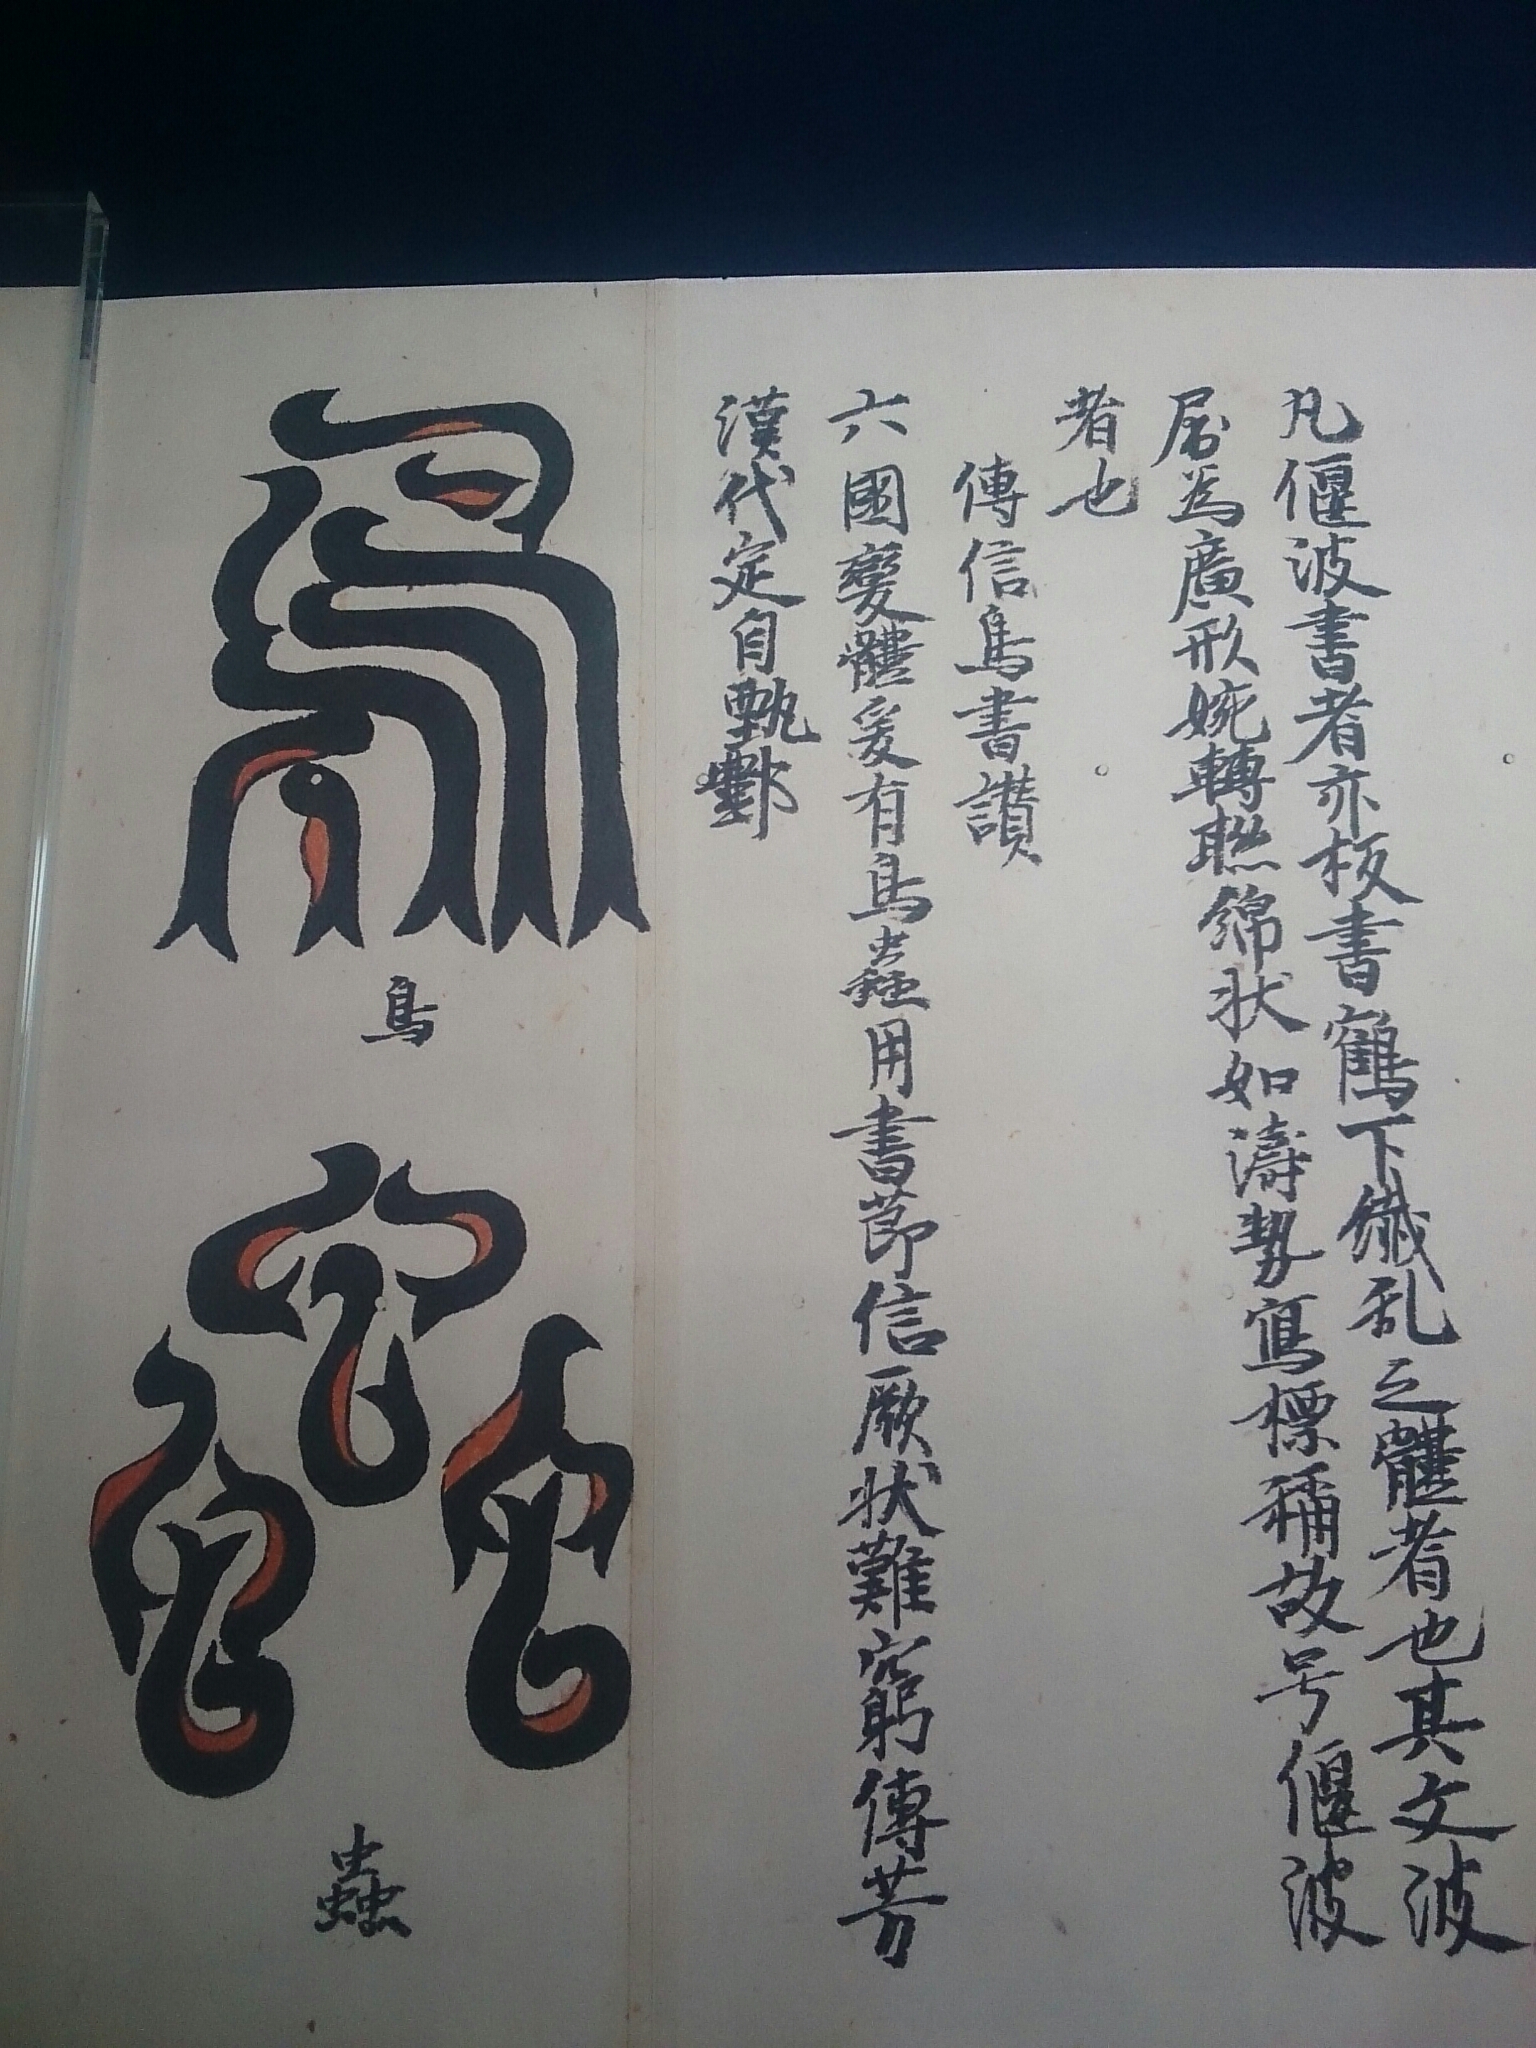 凡偃波書者亦板書鶴下纎乱之體者也其文波
居為廣形婉轉聯綿状如濤勢寫標稱故号偃波
者也
傳信鳥書讃
六國變體爰有鳥蟲用書莭信厥状難窮傳芳
漢代定自甄酆
鳥
蟲
鳥
蟲